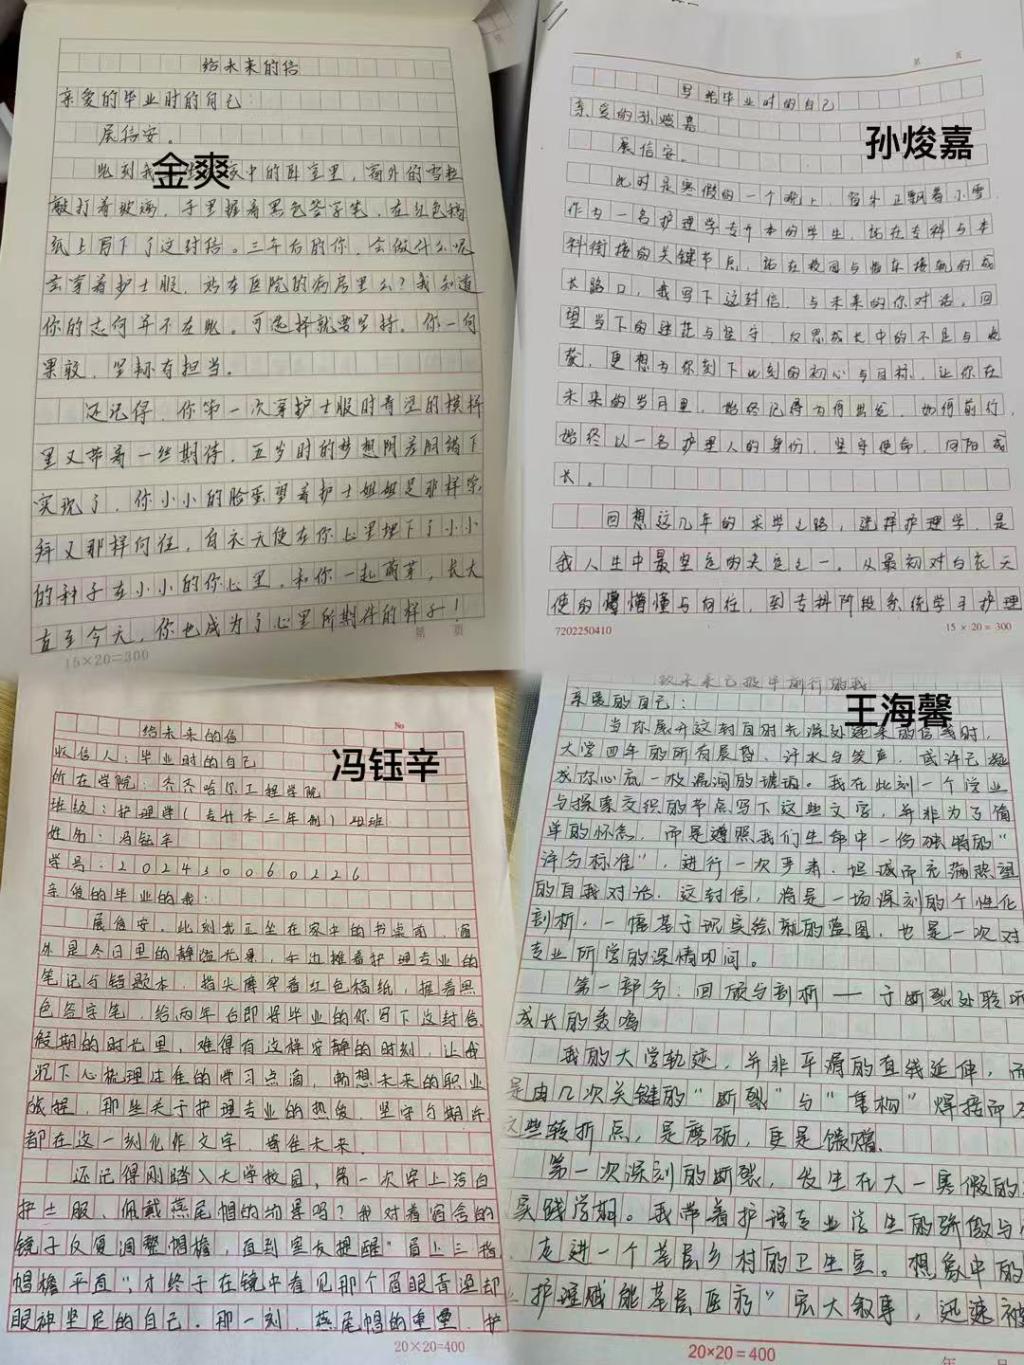 给未来的信
亲爱的毕业时的自己：
展信安。
此刻我 家中的卧室里，窗外的雪粒
敲打着玻璃，手里握着黑色签字笔，在红色稿
纸上写下了这封信。三年后的你，会做什么呢
会穿着护士服，站在医院的病房里么？我知道
你的志向并不在此。可选择就要坚持。你一向
果敢、坚韧有担当。
还记得，你第一次穿护士服时青涩的模样
里又带着一丝期待，五岁时的梦想阴差阳错下
实现了，你小小的脸蛋望着护士姐姐是那样崇
拜又那样向往，白衣天使在你心里埋下了小小
的种子在小小的你心里，和你一起萌芽，长大
直至今天，你也成为了心里所期许的样子！
第 页
15×20=300
金爽
第 页
写给毕业时的自己
亲爱的孙焌嘉
展信安。
此时是寒假的一个晚上，窗外正飘着小雪，
作为一名护理学专升本的学生，站在专科与本
科衔接的关键节点，站在校园与临床接轨的成
长路口，我写下这封信，与未来的你对话，回
望当下的迷茫与坚守，反思成长中的不足与
，更想为你刻下此刻的初心与目标，让你在
未来的岁月里，始终记得为何出发，如何前行，
始终以一名护理人的身份，坚守使命，向阳成
长。
回想这几年的求学之路，选择护理学，是
我人生中最坚定的决定之一。从最初对白衣天
使的懵懵懂与向往，到专科阶段系统学习护理
7202250410
15×20=300
孙焌嘉
No
给未来的信
收信人：毕业时的自己
所在学院：齐齐哈尔工程学院
班级：护理学（专升本三年制）四班
姓名：冯钰辛
学号：202430060226
亲爱的毕业的我：
展信安。此刻我正坐在家中的书桌前，窗
外是冬日里的静谧光景，手边摊着护理专业的
笔记与错题本，指尖摩挲着红色稿纸，握着黑
色签字笔，给两年后即将毕业的你写下这封信。
假期的时光里，难得有这样安静的时刻，让我
沉下心梳理过往的学习点滴，畅想未来的职业
旅程，那些关于护理专业的热爱、坚守与期许
都在这一刻化作文字，寄往未来。
还记得刚踏入大学校园，第一次穿上洁白
护士服、佩戴燕尾帽的场景吗？我对着宿舍的
镜子反复调整帽檐，直到室友提醒“眉上三指
帽檐平直”，才终于在镜中看见那个眉眼青涩却
眼神坚定的自己。那一刻，燕尾帽的重量，护
20×20=400
冯钰辛
致未来已披甲前行的我
亲爱的自己：
当你展开这封自时光深处递来的信笺时，
大学四年的所有晨昏、汗水与笑声，或许已凝
成你心底一枚温润的琥珀。我在此刻一个学业
与探索交织的节点写下这些文字，并非为了简
单的怀念，而是遵照我们生命中一份独特的“
评分标准”，进行一次严肃、坦诚而充满热望
的自我对话。这封信，将是一场深刻的个性化
剖析，一幅基于现实绘就的蓝图，也是一次对
专业所学的深情叩问。
第一部分：回顾与剖析——于断裂处聆听
成长的轰鸣
我的大学轨迹，并非平滑的直线延伸，而
是由几次关键的“断裂”与“重构”焊接而
这些转折点，是磨砺，更是馈赠。
第一次深刻的断裂，发生在大一寒假的
实践学期。我带着护理专业学生的骄傲与
走进一个基层乡村的卫生室。想象中的
护理赋能基层医疗”宏大叙事，迅速被
20×20=400
年 月
王海馨